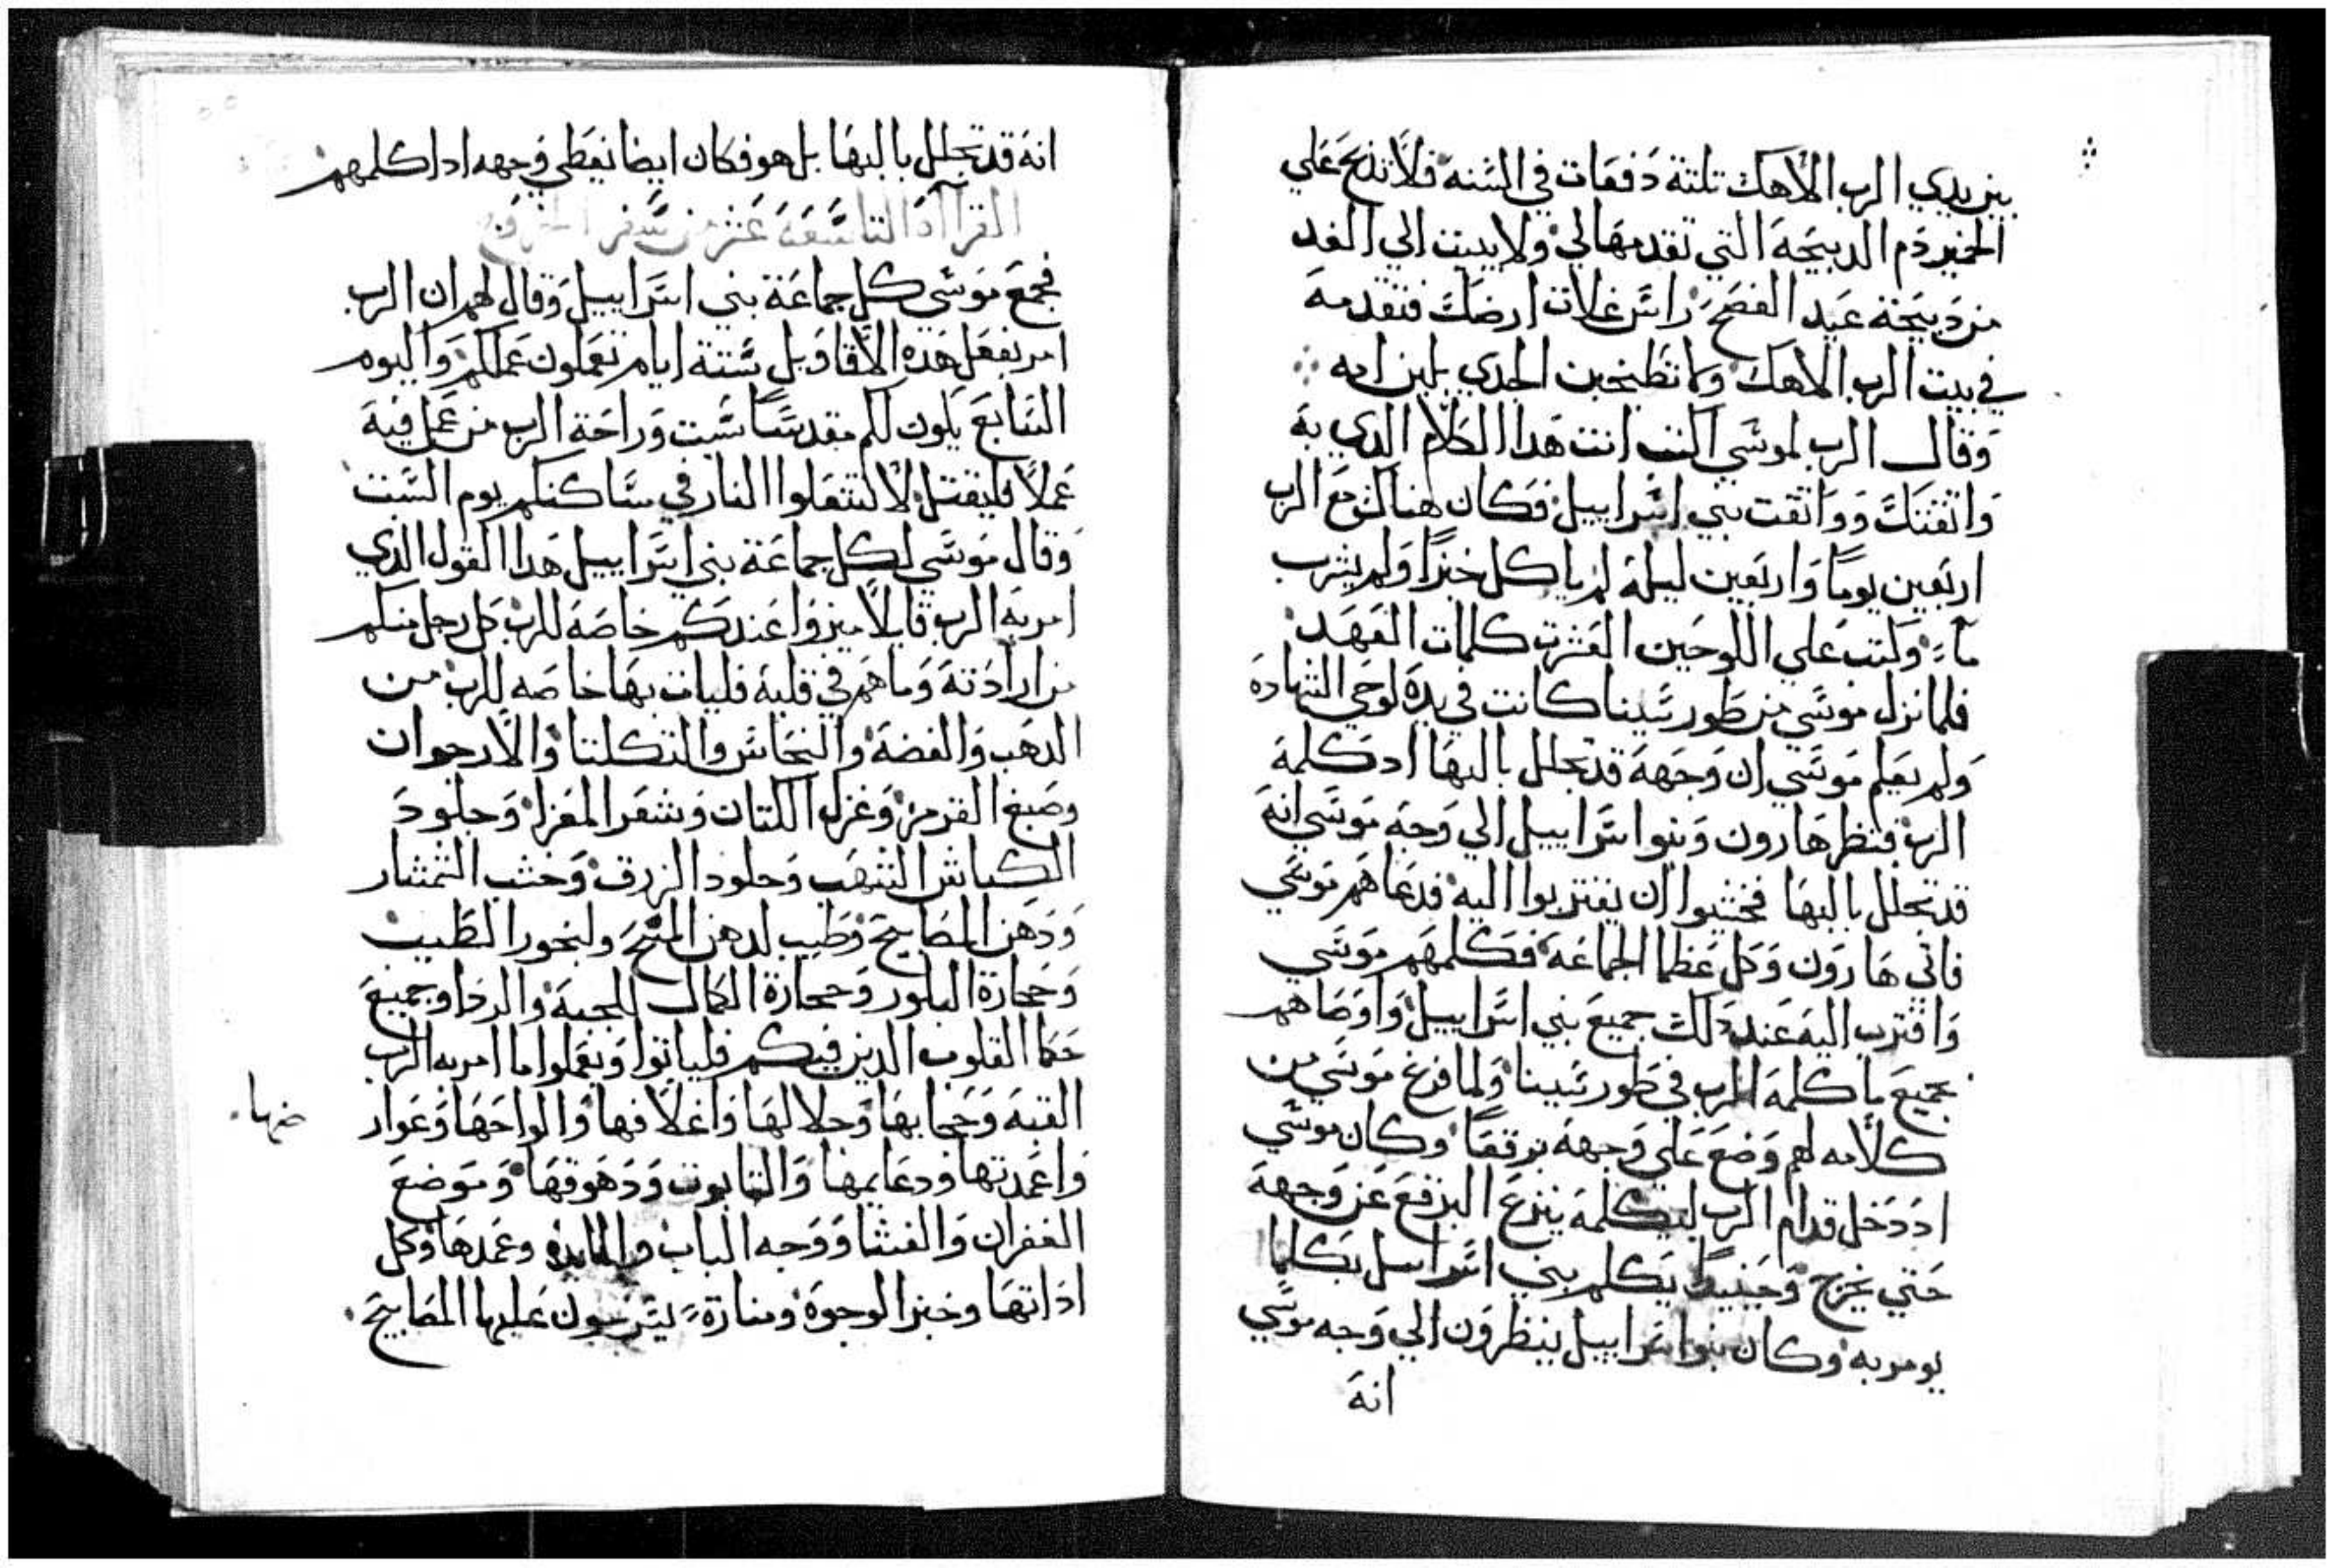 بين يدي الرب الاهك تلتة دفعات في السنة فلا تدبح علي
الخمير دم الدبيحة التي تقدمها لي ولا يبيت الي الغد
من دبيحة عيد الفصح راس غلات ارضك فتقدمه
في بيت الرب الاهك ولا تطبخن الجدي بلبن امه
وقال الرب لموسي اكتب انت هدا الكلام الدي به
واثقتك وواثقت بني اسراييل فكان هناك مع الرب
اربعين يوما واربعين ليلة لم ياكل خبزا ولم يشرب
ماء وكتب علي اللوحين العشرت كلمات العهد
فلما نزل موسي من طور سينا كانت في يده لوحي الشهادة
ولم يعلم موسي ان وجهه قد تجلل بالبها اد كلمه
الرب فنظر هارون وبنوا اسراييل الي وجه موسي انه
قد تجلل بالبها فخشوا ان يقتربوا اليه فدعاهم موسي
فاتي هارون وكل عظما الجماعة فكلمهم موسي
واقترب اليه عند دلك جميع بني اسراييل واوصاهم
بجميع ما كلمه الرب في طور سينا ولما فرغ موسي من
كلامه لهم وضع علي وجهه برقعا وكان موسي
اد دخل قدام الرب ليكلمه ينزع البرقع عن وجهه
حتي يخرج وحينيد يكلم بني اسراييل بكلما
يومر به وكان بنوا اسراييل ينظرون الي وجه موسي
انه
انه قد تجلل بالبها بل هو فكان ايضا يغطي وجهه ادا كلمهم
القراآة التاسعة عشر من سفر الخروج
فجمع موسي كل جماعة بني اسراييل وقال لهم ان الرب
امر بفعل هده الاقاويل ستة ايام تعملون عملكم واليوم
السابع يكون لكم مقدسا سبت وراحة الرب من عمل فيه
عملا فليقتل لا تشعلوا النار في مساكنكم يوم السبت
وقال موسي لكل جماعة بني اسراييل هدا القول الدي
امر به الرب قايلا ميزوا عندكم خاصة للرب كل رجل منكم
من ارادته وما هم في قلبه فليات بها خاصه للرب من
الدهب والفضة والنحاس والتكلتا والارجوان
وصبغ القرمز وغزل الكتان وشعر المعزا وجلود
الكباش الشهب وجلود الزرق وخشب الشمشار
ودهن المصابيح وطيب لدهن المسح ولبخور الطيب
وحجارة البلور وحجارة الكمال للجبة والردا وجميع
حكما القلوب الدين فيكم فلياتوا ويعملوا ما امر به الرب
القبة وحجابها وحلالها واغلافها والواحها وعوار
ضها
واعمدتها ودعايمها والتابوت ودهوقها وموضع
الغفران والغشا ووجه الباب والمايدة وعمدها وكل
اداتها وخبز الوجوه ومنارة يسرجون عليها المصابيح